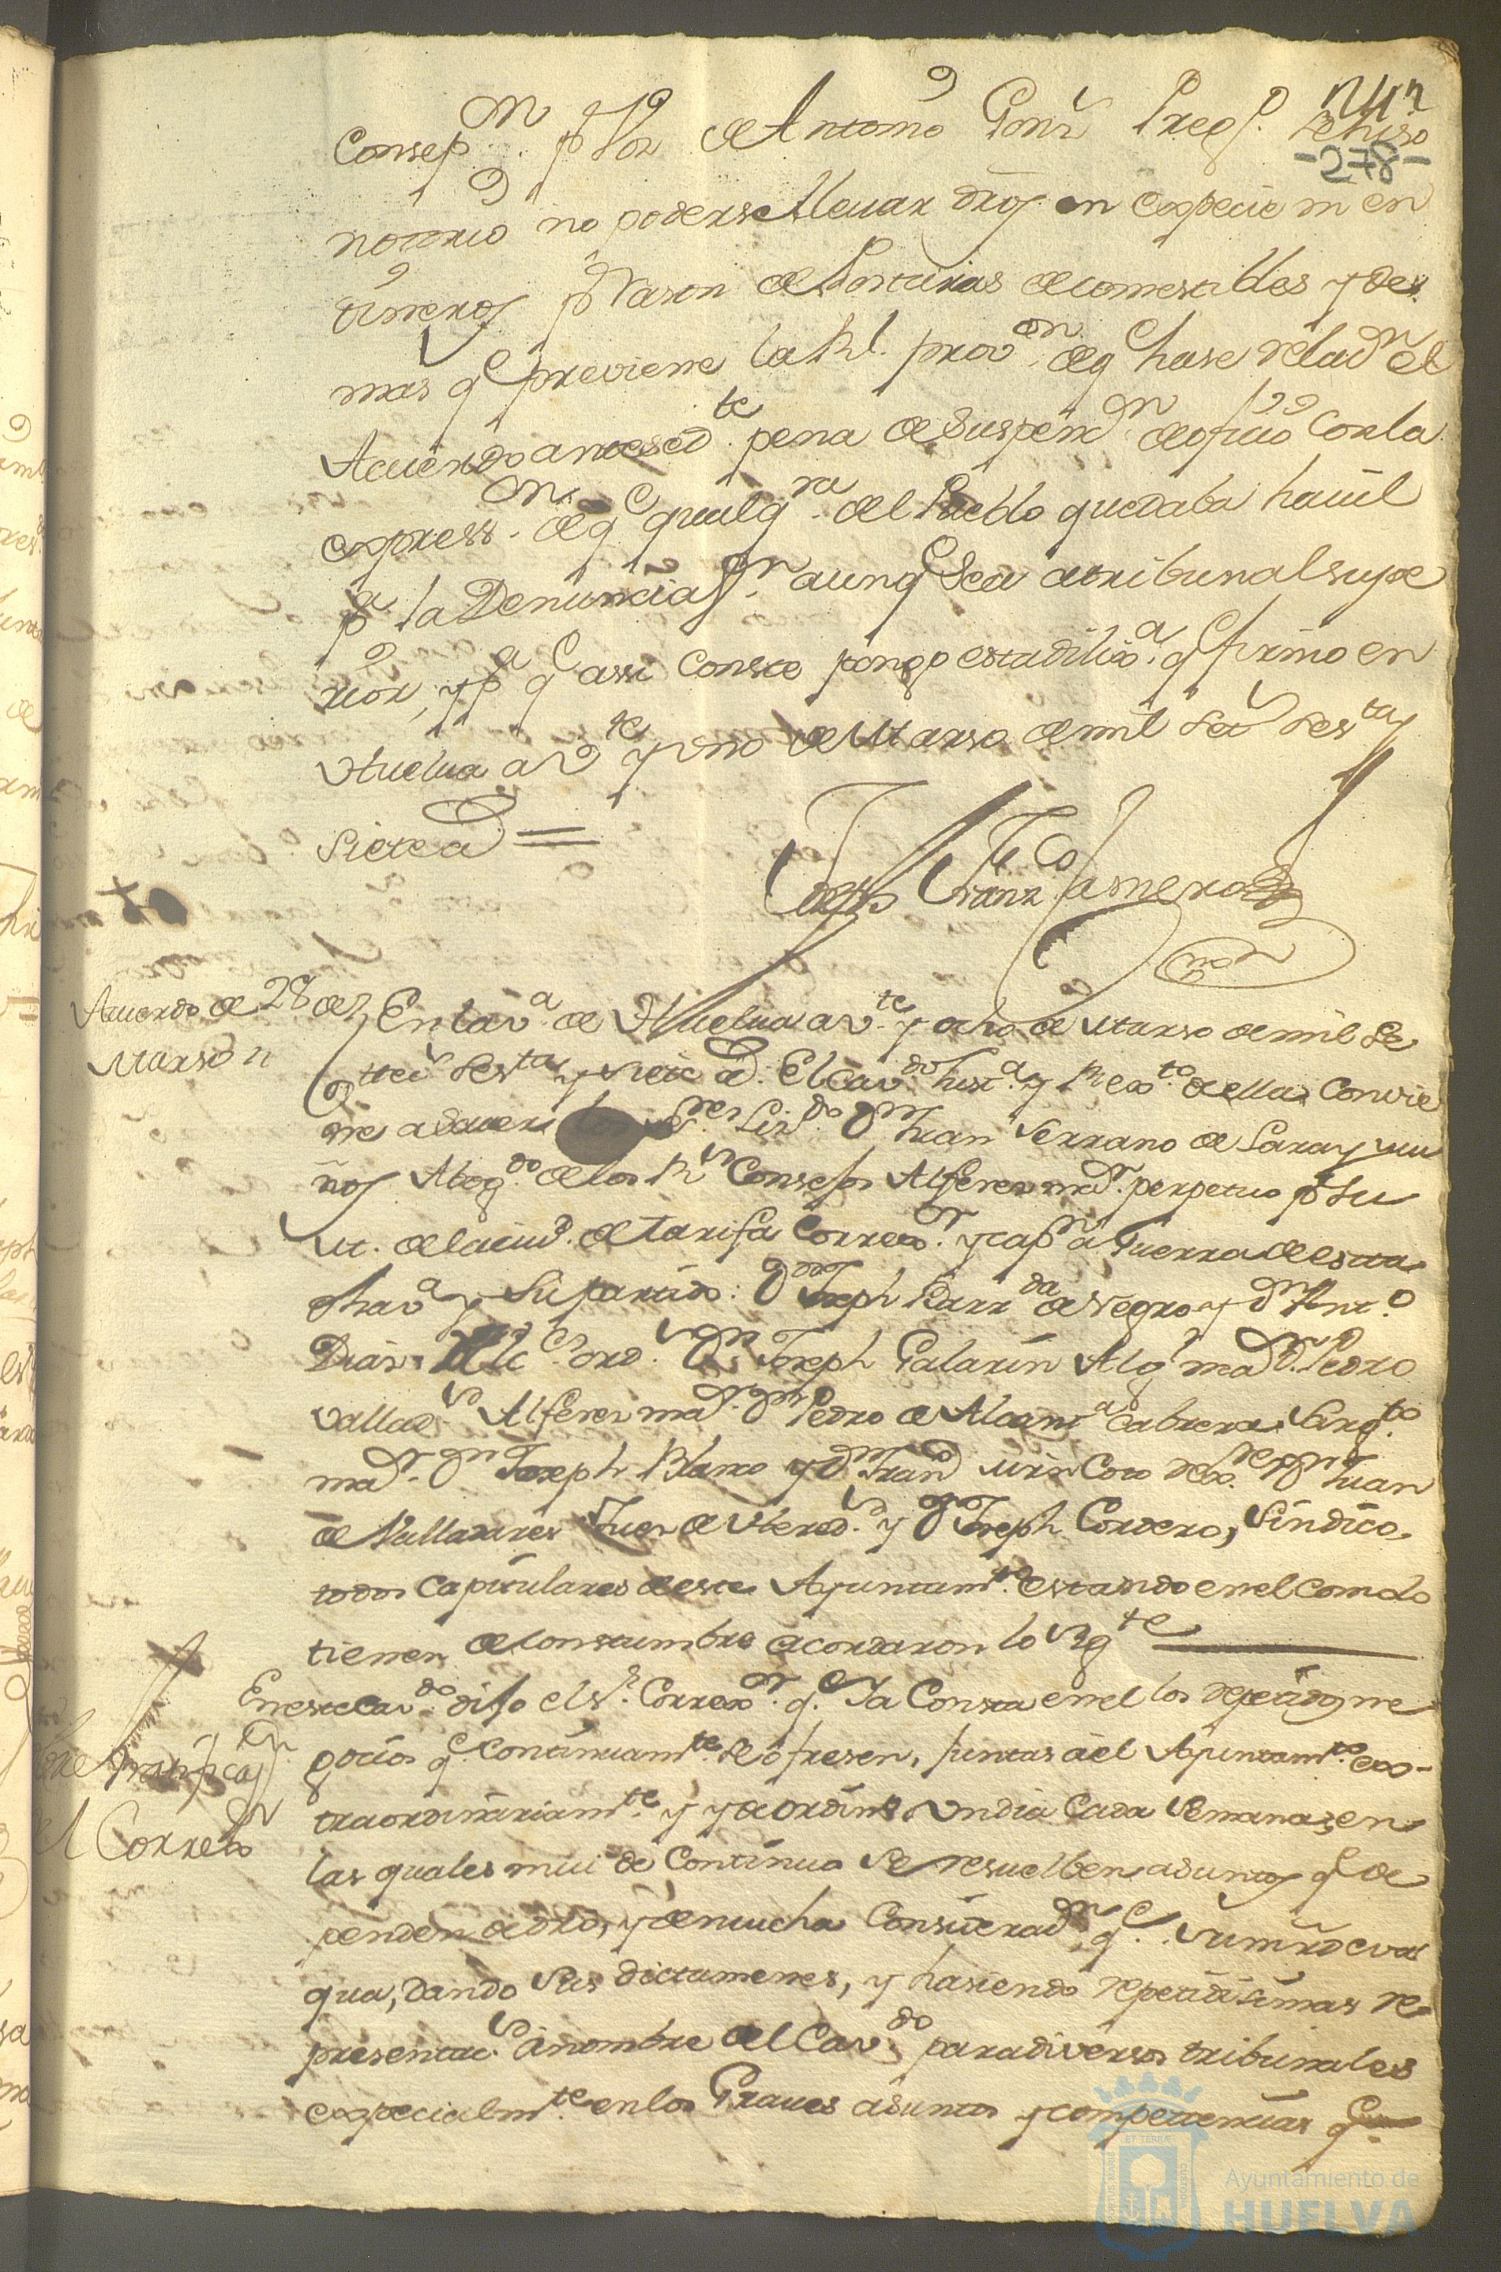 242
-278-
Consep.n p.r Voz de Antonio Gonz.s Preg.o se hiso
notorio no poderse llevar dros en especie ni en
dineros p.r rason de Posturas de comestibles y de
mas q.e previene la Rl. prov.on de q.e hase relac.n el
Acuerdo antesed.te pena de suspenc.n de oficio con la
express.n de q.e qualq.ra del Pueblo quedaba havil
p.a la Denunciac.n aunq.e sea a tribunal supe
rior, y p.a q.e assi conste pongo esta dilix.a q.e firmo en
Huelva a v.te y uno de Marso de mil set.s ses.ta y
siete a.s =
Joseph Franz.co Camero
Acuerdo de 28 de
Marso
En la v.a de Huelva a v.te y ocho de Marso de mil se
tec.s ses.ta y siete a.s El Cav.do Just.a y Rex.to de ella Convie
ne a saver los S.res Liz.do D.n Juan Serrano de Lara y mu
ños Abog.do de los R.s Consejos Alferez ma.r perpetuo p.r su
M. de la ciud. de Tarifa Correx.r y cap.n a Guerra de esta
dha v.a y su partido: D.n Joseph Barr.da de Negro y D.n Ant.o
Dias Alc.es ord.s D.n Joseph Galarin Alg.l ma.r D.n Pedro
Vallad.s Alferez ma.r D.n Pedro de Alcant.a Cabrera Sarg.to
ma.r D.n Joseph Blanco y D.n Fran.co Mrn Coto rex.res D.n Juan
de Valladares Juez de Hered.s y D.n Joseph Cordero, Sindico
todos Capitulares de este Ayuntam.to estando en el como lo
tienen de constumbre acordaron lo sig.te
Sre Gratificaz.on
del Correx.r
En este Cav.do dijo el S.r Correx.r q.e Ya Consta en el los repetidos ne
gocios q.e continuam.te se ofresen, Juntas a el Ayuntam.to ex-
traordinariam.te y de ordin.o un dia cada semana, en
las quales mui de Continuo se resuelben asuntos q.e de
penden de dro, y de mucha Considerac.n q.e su mrd evac
qua, dando sus dictamenes, y hasiendo repetidisimas re
presentac.s a nombre del Cav.do para diversos tribunales
especialm.te en los Graves asuntos y competencias q.e
Ayuntamiento de
HUELVA